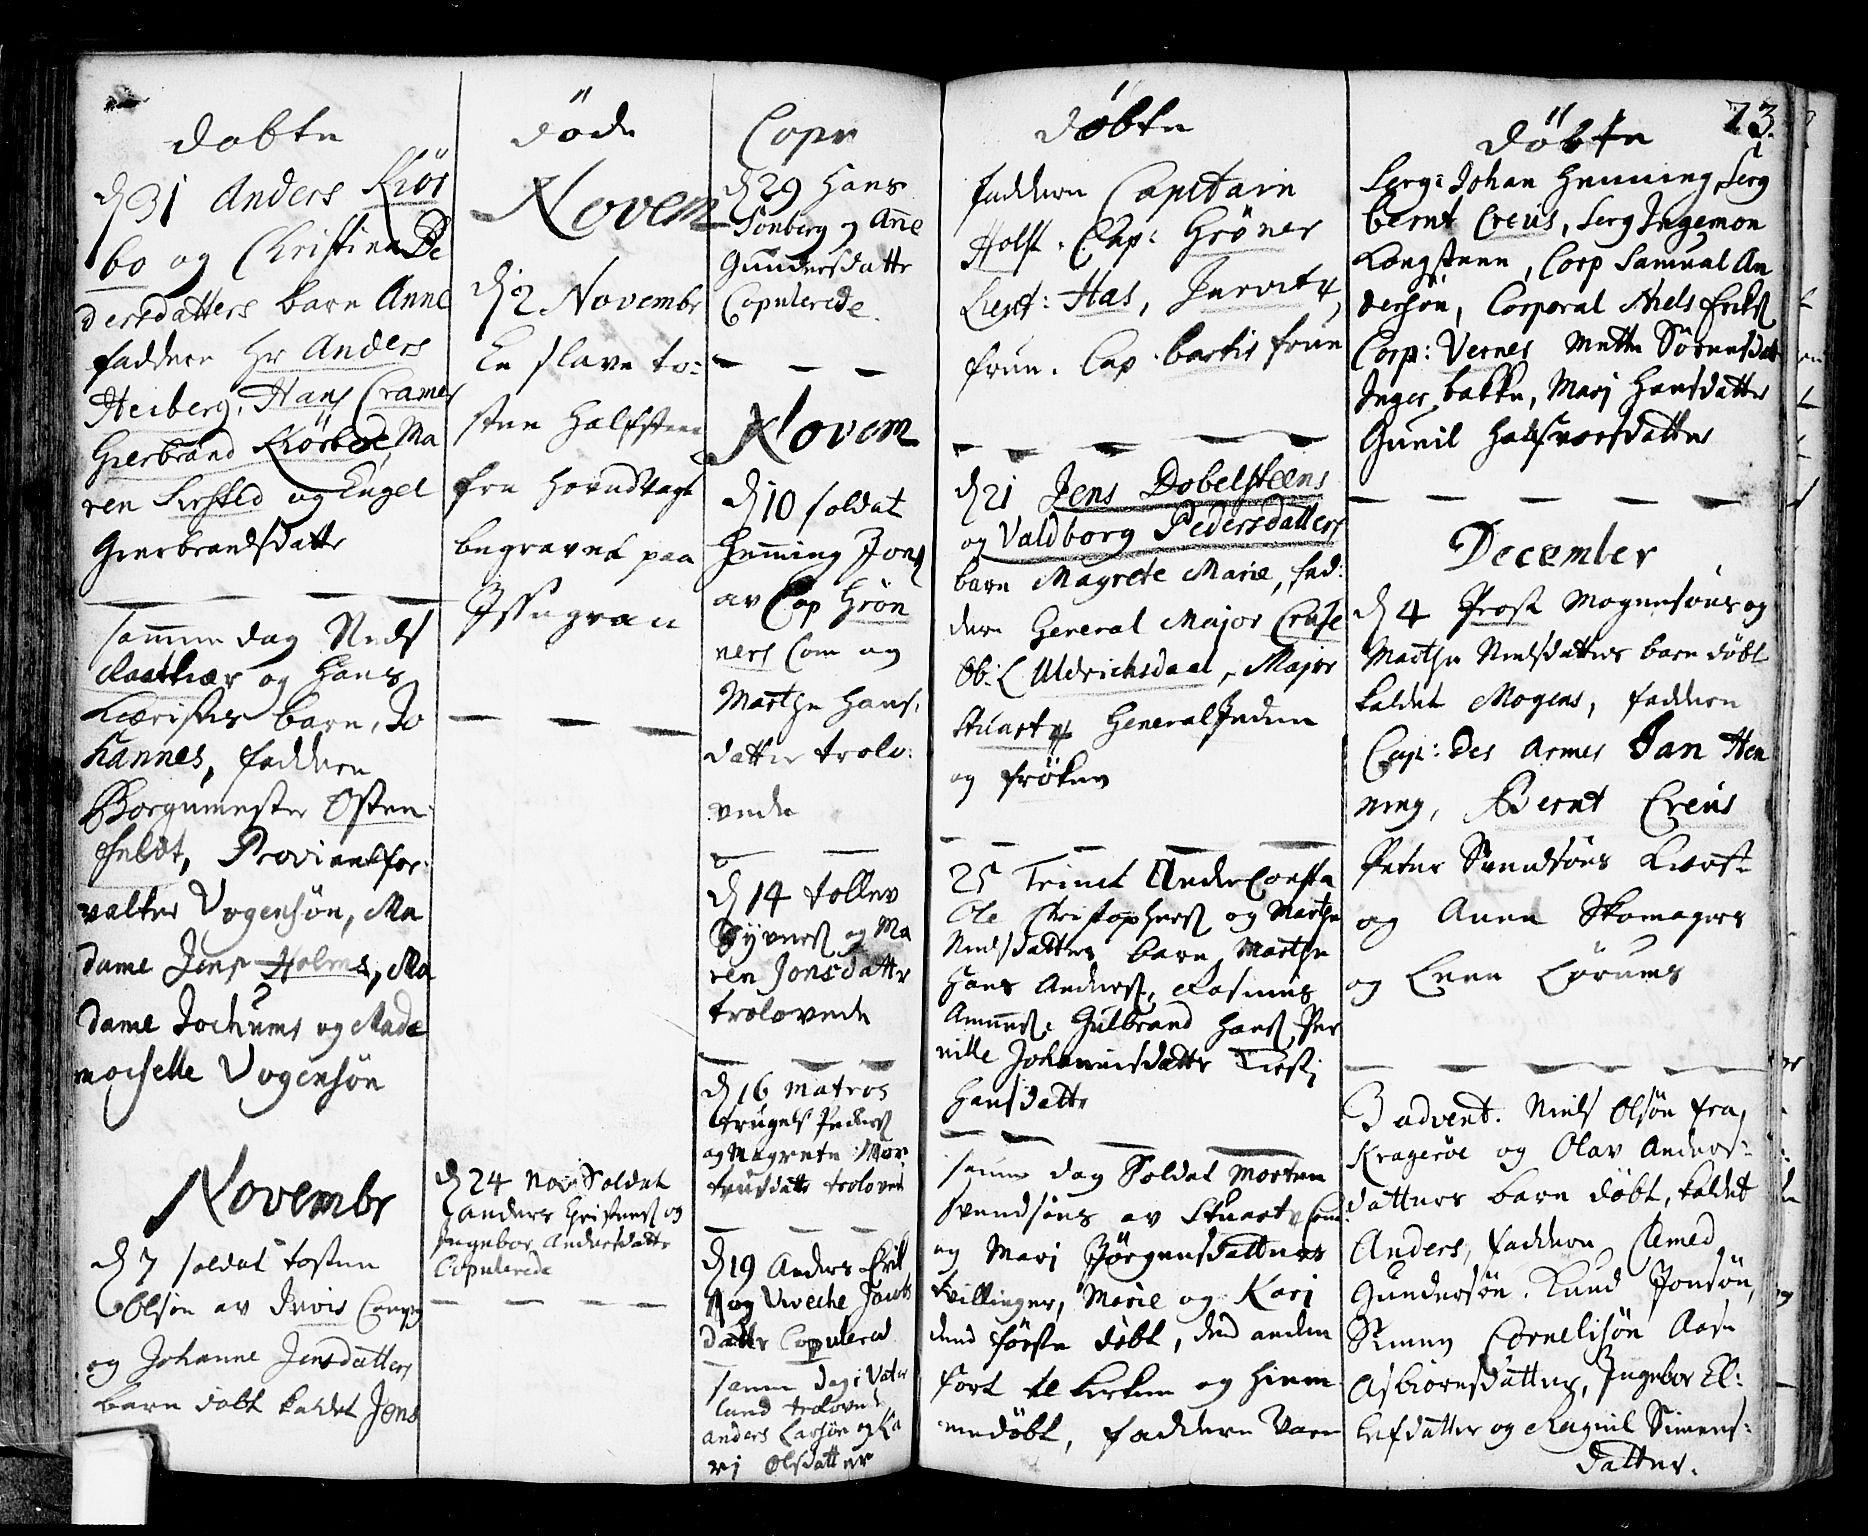 döbte
d 31 Anders Kiör
bo og Christine Pe
dersdatters barn Anne
faddere Hr Anders
Heiberg, Hans Cramer
Gierbrand Kiörboe, Ma
ren og Engel
Gierbrandsdatter
samme dag Niels
Raatkiær og Hans
barn, Jo
hannes, faddere
Borgemester Osten
feldt, Proviantfor:
valter Vogensön, Ma
dame Jens Holms, Ma
dame Jochums og Made
moiselle Vogensön
Novembr
d 7 soldat tosten
Olsön av Comp
og Johanne Jensdatters
barn döbt kaldet Jens
döde
Novem
d 2 Novembr
En slave to:
sten Halfsten
fra
begravet paa
d 24 Nov Soldat
anders Christens og
Ingebor Andersdatter
Copulerede
Copu
d 29 Hans
Tonberg og Anne
Gundersdatter
Copulerede.
Novem
d 10 soldat
Henning Jons
av Cap Grön
ners Com og
Marthe Hans,
datter trolo:
vede
d 14 tollev
Syvers og Ma
ren Jonsdatter
trolovede
d 16 Matros
trugels Peders
og Magrete Mor
tensdatter trolovet
d 19 Anders Erik
s og Viveche Jacobs
datter Copulered
samme dag i Vater
land trolovede
anders Larsön og Ka
ri Olsdatter
döbte
faddere Capitain
Holst, Cap: Gröner
Lieut: Has,
frue. Cap bartis frue
d 21 Jens Dobelsteens
og Valdborg Pedersdatters
barn Magrete Marie, fad:
dere General Major Cruse
Ob: L Uldrichsdaal, Major
Stuart General
og fröken
25 Trinit
Ole Christophers og Marthe
Nielsdatters barn Marthe
Hans Anders, Rasmus
Amunds: Gulbrand Hans, Per
nille Johannisdatter
Hansdatter
samme dag Soldat Morten
Svendsöns av Stuarts Com:
og Mari Jörgensdatters
tvillinger, Marie og Kari
dend förste döbt, dend anden
fört te kirken og hiem
medöbt, faddere vare
73.
döbte
Serg: Johan Henning, Serg
bernt Creus, Serg Ingemon
Langsteen, Corp Samuel An
dersön, Corporal Niels Eriks
Corp: Vernes Mette Sörensdat
Inger bakke, Mari Hansdatter
Gunil Halfvorsdatter
December
d 4 Prost Mogensöns og
Marthe Nielsdatters barn döbt
kaldet Mogens, faddere
Cap: des Armes Jan Hen
ning, Bernt Creus
Peter Svendsöns
og Anne Skomagers
og Lene Lörums
3 advent. Niels Olsön fra
Krageröe og Olav Anders:
datters barn döbt, kaldet
Anders, faddere Clemed
Gundersön. Knud Jonsön,
Simen Cornelisön Aase
Asbiornsdatter, Ingebor El:
lefsdatter og Ragnil Simens:
datter.